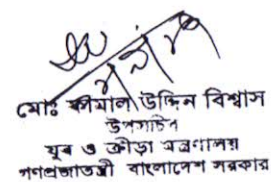 মোঃ কামাল উদ্দিন বিশ্বাস
উপসচিব
যুব ও ক্রীড়া মন্ত্রণালয়
গণপ্রজাতন্ত্রী বাংলাদেশ সরকার